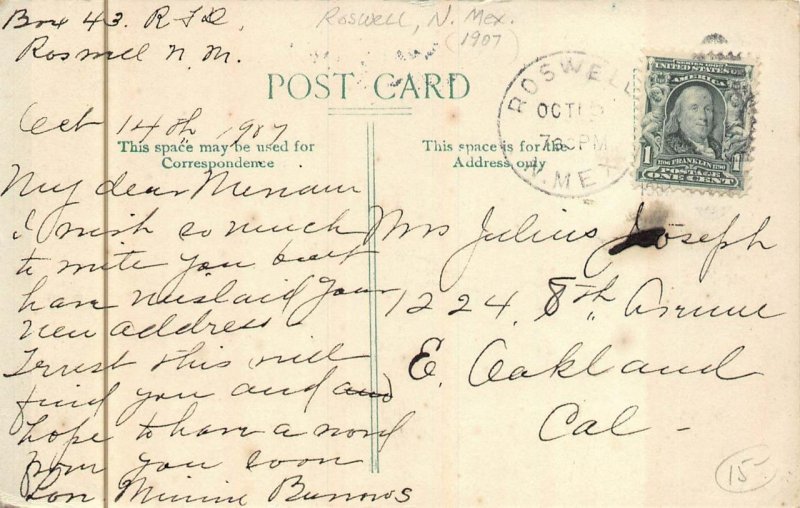 Box 43. R F D.
Roswell N. M.
Roswell, N. Mex.
(1907)
POST CARD
Oct 14th 1907
This space may be used for
Correspondence
This space is for the
Address only
ROSWELL
OCT
7 30 PM
N. MEX
SERIES 1902
UNITED STATES OF
AMERICA
1706 FRANKLIN 1790
POSTAGE
1 ONE CENT 1
My dear Miriam
I wish so much
to write you but
have mislaid your
new address.
Trust this will
find you and and
hope to have a word
from you soon
Lov. Minnie Burrows
Mrs Julius Joseph
1224, 8th Avenue
E. Oakland
Cal -
15-